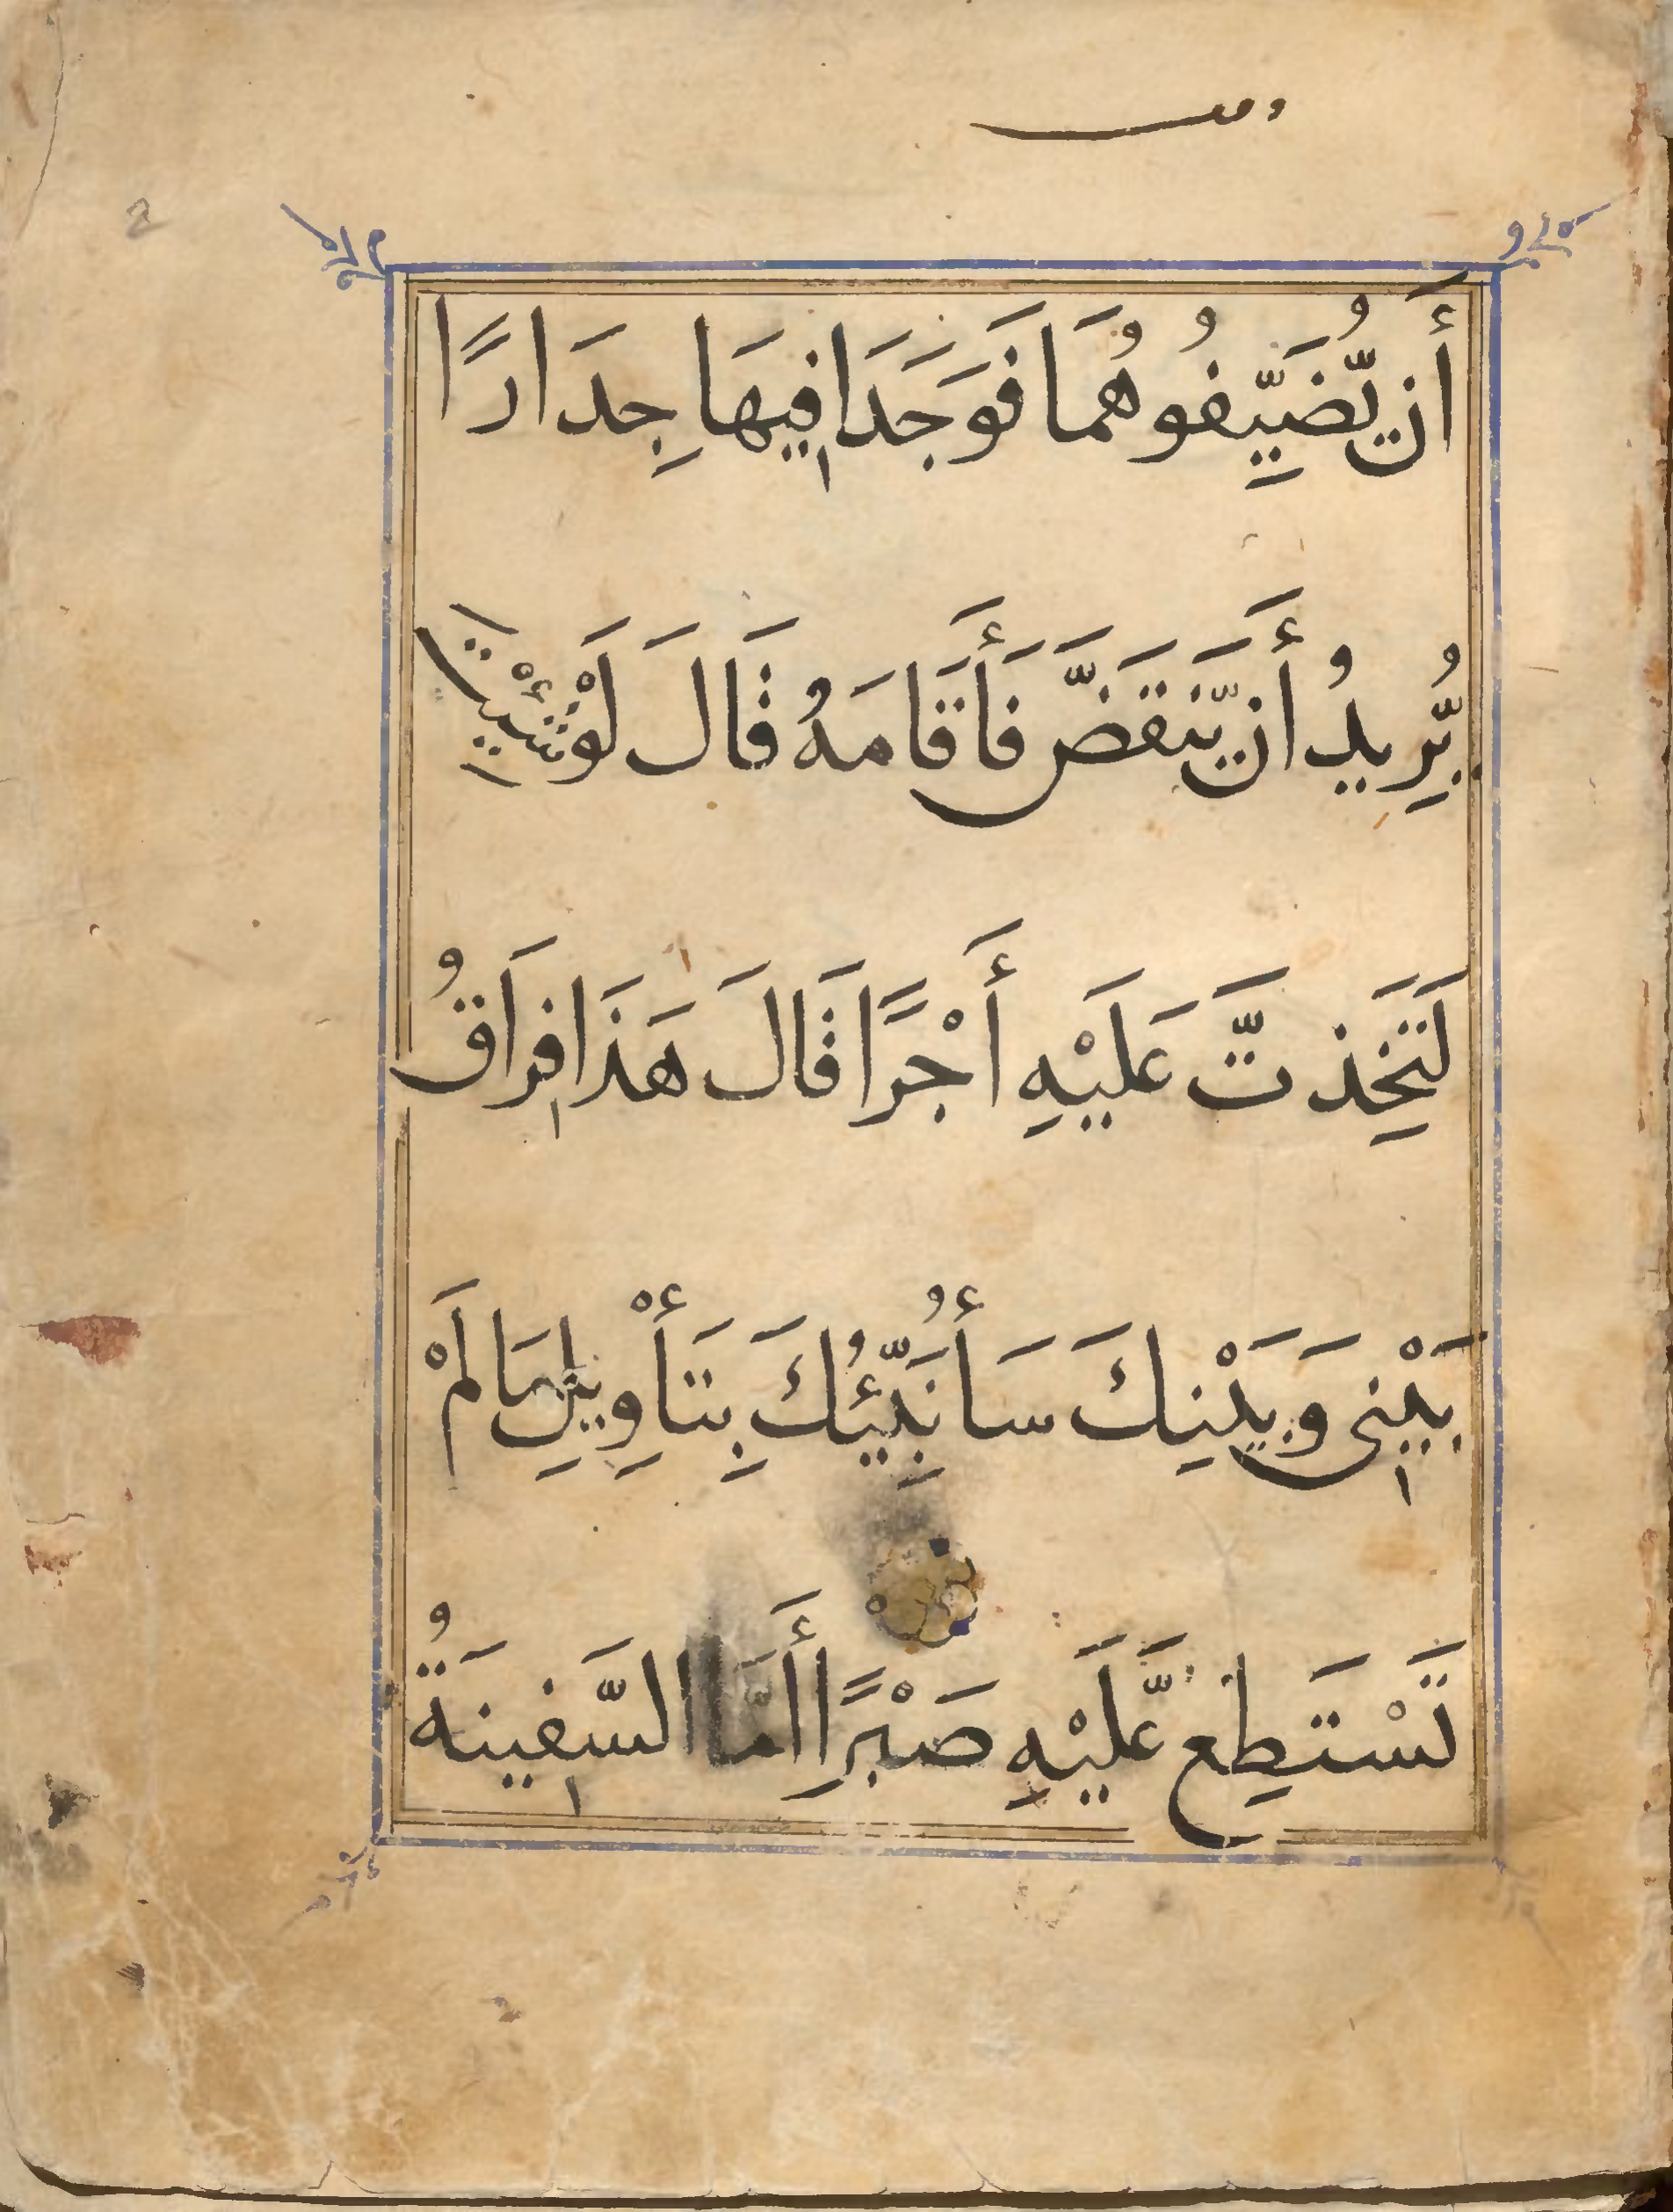 وقف
2
أَن يُّضَيِّفُوهُمَا فَوَجَدَا فِيهَا جِدَارًا
يُّرِيدُ أَن يَّنقَضَّ فَأَقَامَهُ قَالَ لَوْ شِئْتَ
لَتَخِذتَّ عَلَيْهِ أَجْرًا قَالَ هَذَا فِرَاقُ
بَيْنِى وَبَيْنِكَ سَأُنَبِّئُكَ بِتَأْوِيلِ مَا لَمْ
تَسْتَطِع عَّلَيْهِ صَبْرًا أَمَّا السَّفِينَةُ